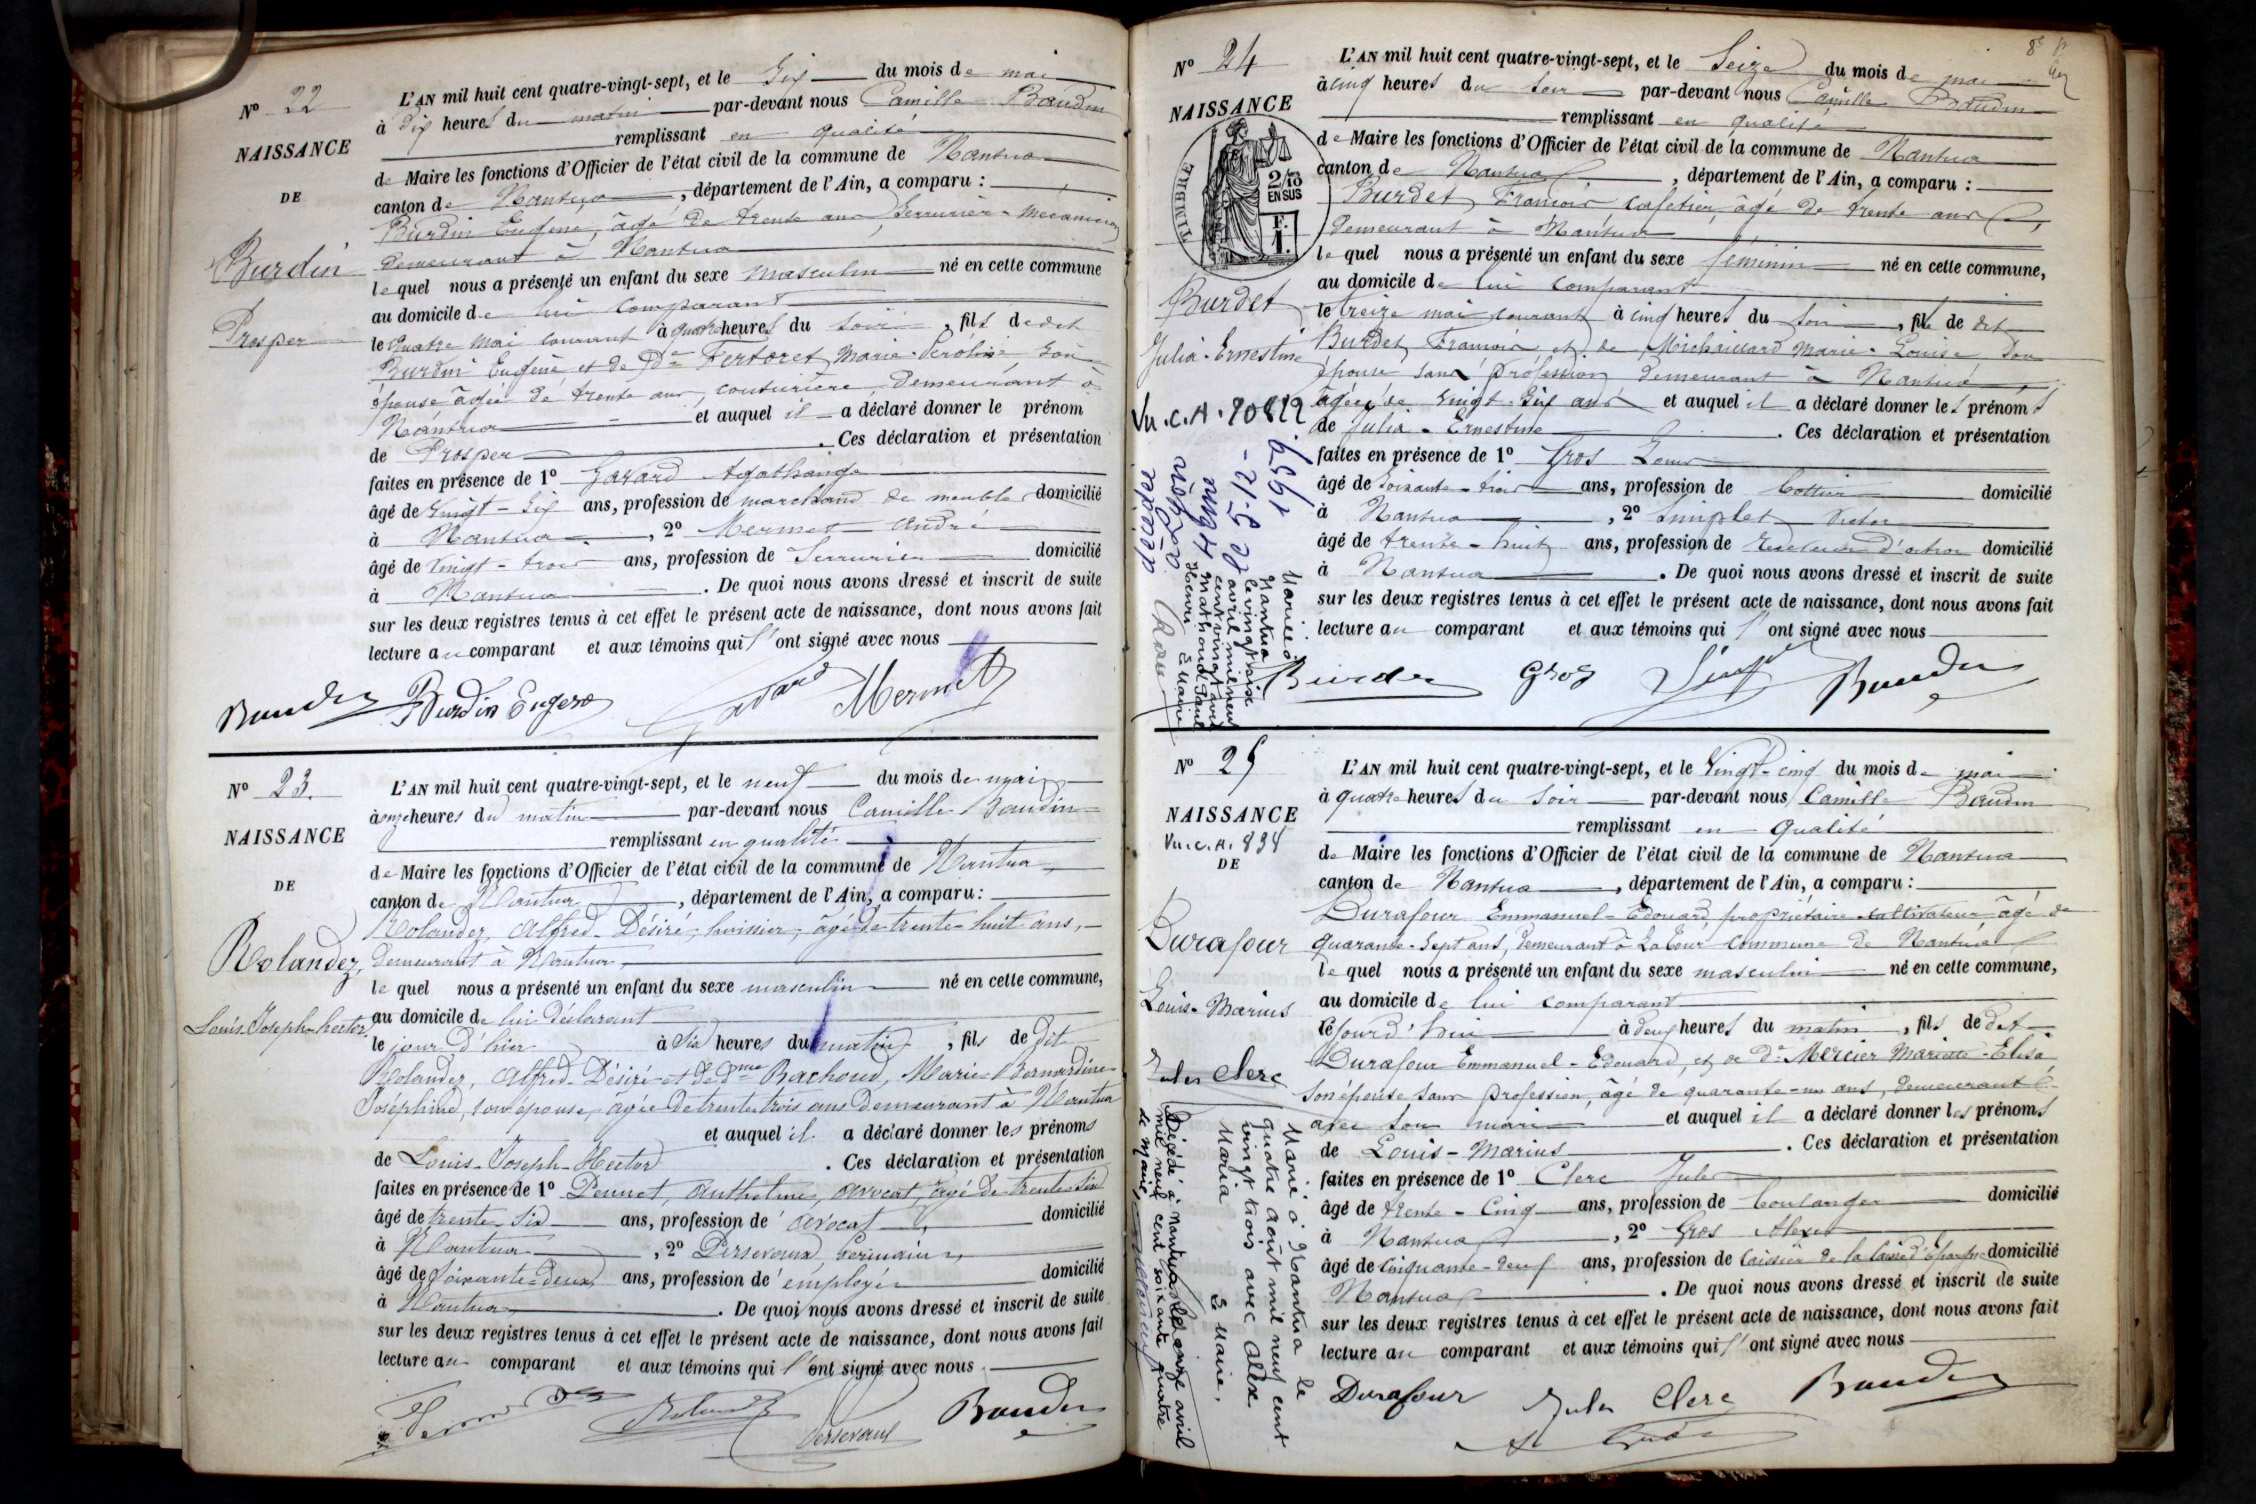 N° 22
NAISSANCE
DE
Burdin
Prosper
L'AN mil huit cent quatre-vingt-sept, et le Six du mois de mai
à dix heures du matin par-devant nous Camille Baudin
remplissant en qualité
de Maire les fonctions d'Officier de l'état civil de la commune de Nantua
canton de Nantua, département de l'Ain, a comparu :
Burdin Eugène, âgé de trente ans Serrurier-mécanicien
demeurant à Nantua
lequel nous a présenté un enfant du sexe masculin né en cette commune
au domicile de lui comparant
le quatre mai courant à quatre heures du soir, fils de dit
Burdin Eugène et de De Fertoret Marie son
épouse âgée de trente ans, couturière demeurant à
Nantua et auquel il a déclaré donner le prénom
de Prosper. Ces déclaration et présentation
faites en présence de 1° Gavard Agathange
âgé de vingt-six ans, profession de marchand de meubles domicilié
à Nantua, 2° Mermet André
âgé de vingt-trois ans, profession de Serrurier domicilié
à Nantua. De quoi nous avons dressé et inscrit de suite
sur les deux registres tenus à cet effet le présent acte de naissance, dont nous avons fait
lecture au comparant et aux témoins qui l'ont signé avec nous
Baudin Burdin Eugène Gavard Mermet
N° 23.
NAISSANCE
DE
Rolandez,
Louis-Joseph-hector,
L'AN mil huit cent quatre-vingt-sept, et le neuf du mois de mai
à onze heures du matin par-devant nous Camille Baudin
remplissant en qualité
de Maire les fonctions d'Officier de l'état civil de la commune de Nantua,
canton de Nantua, département de l'Ain, a comparu :
Rolandez, Alfred-Désiré, huissier, âgé de trente-huit ans,
demeurant à Nantua,
lequel nous a présenté un enfant du sexe masculin né en cette commune,
au domicile de lui déclarant
le jour d'hier à six heures du matin, fils de dit
Rolandez, Alfred-Désiré et de dme Bachoud, Marie-Bernardine-
Joséphine, son épouse, âgée de trente trois ans demeurant à Nantua
et auquel il a déclaré donner les prénoms
de Louis-Joseph-Hector. Ces déclaration et présentation
faites en présence de 1° Anthelme, avocat, âgé de trente six
âgé de trente-six ans, profession d'avocat, domicilié
à Nantua, 2° Germain,
âgé de soixante-deux ans, profession d'employé domicilié
à Nantua. De quoi nous avons dressé et inscrit de suite
sur les deux registres tenus à cet effet le présent acte de naissance, dont nous avons fait
lecture au comparant et aux témoins qui l'ont signé avec nous
Rolandez Baudin
N° 24
NAISSANCE
TIMBRE
2/10
EN SUS
F.
1.
Burdet
Julia-Ernestine
Vu.c.A.
Mariée à
Nantua
le vingt six
avril mil neuf
cent vingt avec
Henri
Le Maire
décédée
L'AN mil huit cent quatre-vingt-sept, et le Seize du mois de mai
à cinq heures du soir par-devant nous Camille Baudin
remplissant en qualité
de Maire les fonctions d'Officier de l'état civil de la commune de Nantua
canton de Nantua, département de l'Ain, a comparu :
Burdet François, cafetier âgé de trente ans
demeurant à Nantua
lequel nous a présenté un enfant du sexe féminin né en cette commune,
au domicile de lui comparant
le treize mai courant à cinq heures du soir, fille de dit
Burdet François et de Michaillard Marie-Louise Son
épouse sans profession demeurant à Nantua
âgée de vingt-six ans et auquel il a déclaré donner les prénoms
de Julia-Ernestine. Ces déclaration et présentation
faites en présence de 1° Gros Louis
âgé de soixante-trois ans, profession de domicilié
à Nantua, 2° Simplet Victor
âgé de trente-huit ans, profession de domicilié
à Nantua. De quoi nous avons dressé et inscrit de suite
sur les deux registres tenus à cet effet le présent acte de naissance, dont nous avons fait
lecture au comparant et aux témoins qui l'ont signé avec nous
Burdet Gros Baudin
N° 25
NAISSANCE
Vu.c.A. 834
DE
Durafour
Louis-Marius
Jules Clerc
Marié à Nantua le
quatre août mil neuf cent
vingt trois avec Alex
Maria
Le Maire,
Décédé à Nantua le onze avril
mil neuf cent soixante quatre
L'AN mil huit cent quatre-vingt-sept, et le Vingt-cinq du mois de mai
à quatre heures du soir par-devant nous Camille Baudin
remplissant en qualité
de Maire les fonctions d'Officier de l'état civil de la commune de Nantua
canton de Nantua, département de l'Ain, a comparu :
Durafour Emmanuel-Edouard propriétaire cultivateur âgé de
quarante-sept ans, demeurant à commune de Nantua
lequel nous a présenté un enfant du sexe masculin né en cette commune,
au domicile de lui comparant
ce jourd'hui à deux heures du matin, fils de dit
Durafour Emmanuel-Edouard, et de De Mercier Mariette-Elisa
son épouse sans profession, âgé de quarante-un ans, demeurant
avec son mari et auquel il a déclaré donner les prénoms
de Louis-Marius. Ces déclaration et présentation
faites en présence de 1° Clerc Jules
âgé de trente-cinq ans, profession de boulanger domicilié
à Nantua, 2° Gros Alexis
âgé de cinquante-neuf ans, profession de caissier de la caisse d'épargne domicilié
Nantua. De quoi nous avons dressé et inscrit de suite
sur les deux registres tenus à cet effet le présent acte de naissance, dont nous avons fait
lecture au comparant et aux témoins qui l'ont signé avec nous
Durafour Jules Clerc Baudin